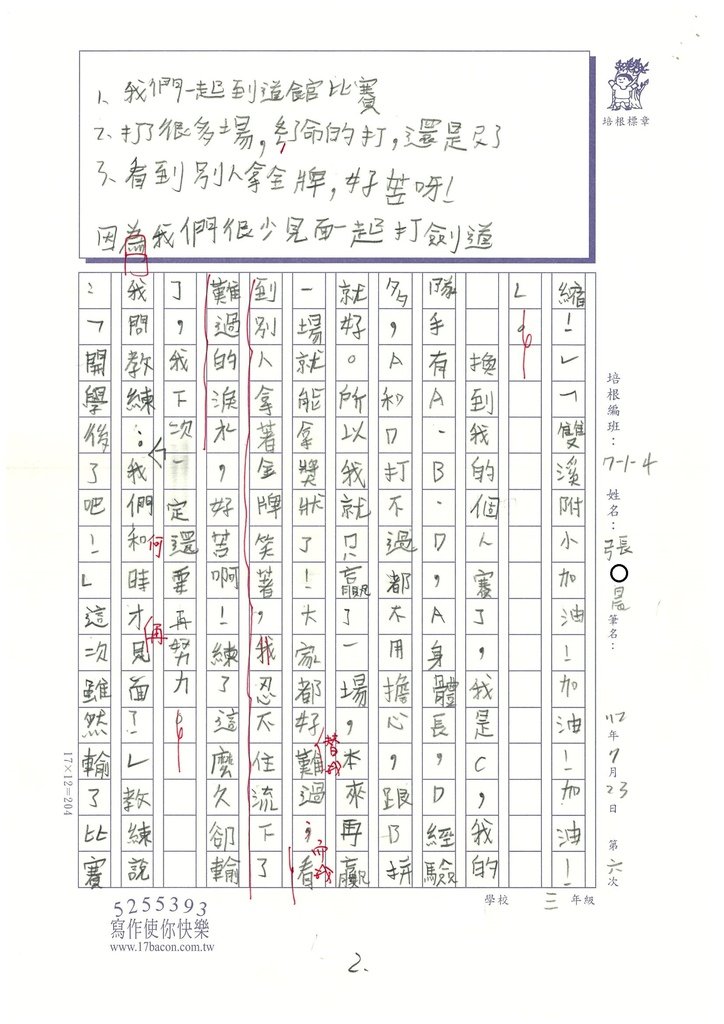 1、我們一起到道館比賽
2、打了很多場，拿命的打，還是只了
3、看到別人拿金牌，好苦呀！
因為我們很少見面一起打劍道
培根標章
縮！」「雙溪附小加油！加油！加油！
」
換到我的個人賽了，我是C，我的
隊手有A、B、D，A身體長，D經驗
多，A和D打不過都不用擔心，跟B拼
就好。所以我就只贏了一場，本來再贏
一場就能拿獎狀了！大家都好難過，看
替我
而我
到別人拿著金牌笑著，我忍不住流下了
難過的淚水，好苦啊！練了這麼久卻輸
了，我下次一定還要再努力
我問教練：我們和時才見面了！」教練說
何
再
：「開學後了吧！」這次雖然輸了比賽
培根編班：7-1-4
姓名：張○晨
筆名：
112年7月23日
第六次
17×12=204
5255393
寫作使你快樂
www.17bacon.com.tw
學校 三 年級
2.